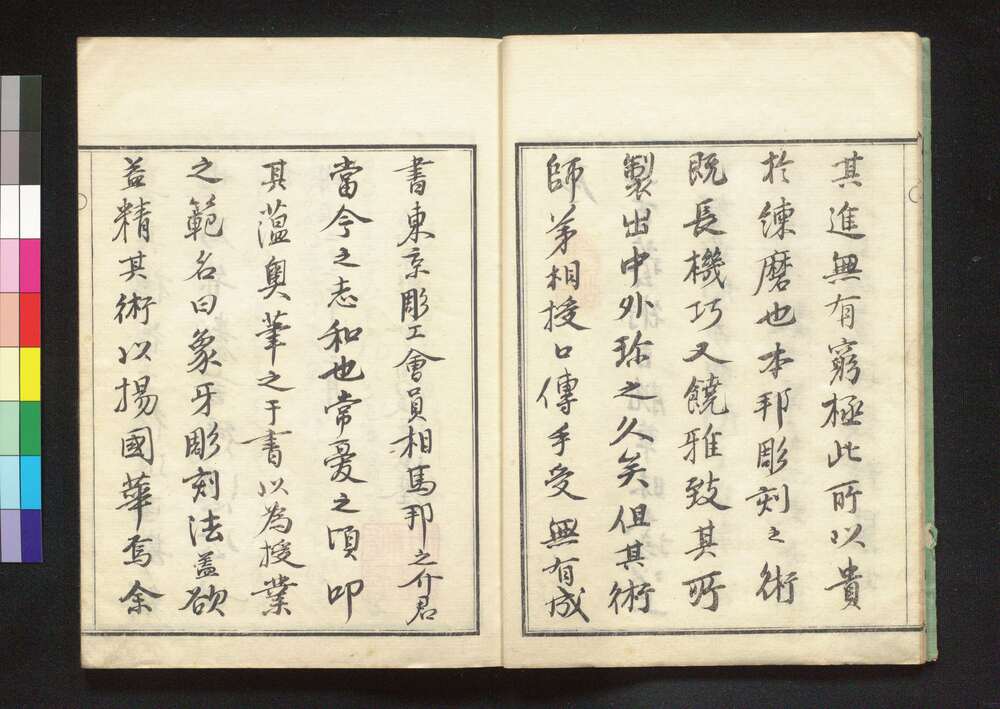 其進無有窮極此所以貴
於練磨也本邦彫刻之術
既長機巧又饒雅致其所
製出中外珎之久矣但其術
師弟相授口傳手受無有成
書東京彫工會員相馬邦之介君
當今之志和也常憂之頃叩
其薀奥筆之于書以為授業
之範名曰象牙彫刻法盖欲
益精其術以揚國華焉余